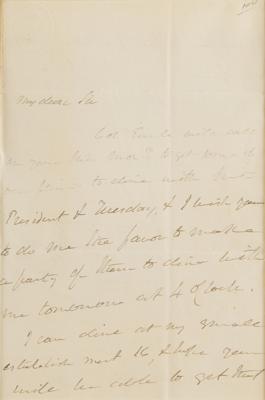 My dear Sir
Col will call
on you this
to dine with
President & Tuesday, & I wish you
to do me the favor to make
a party of them to dine with
me tomorrow at 4 O'Clock.
I can dine at my small
establishment 16, & hope you
will be able to get that